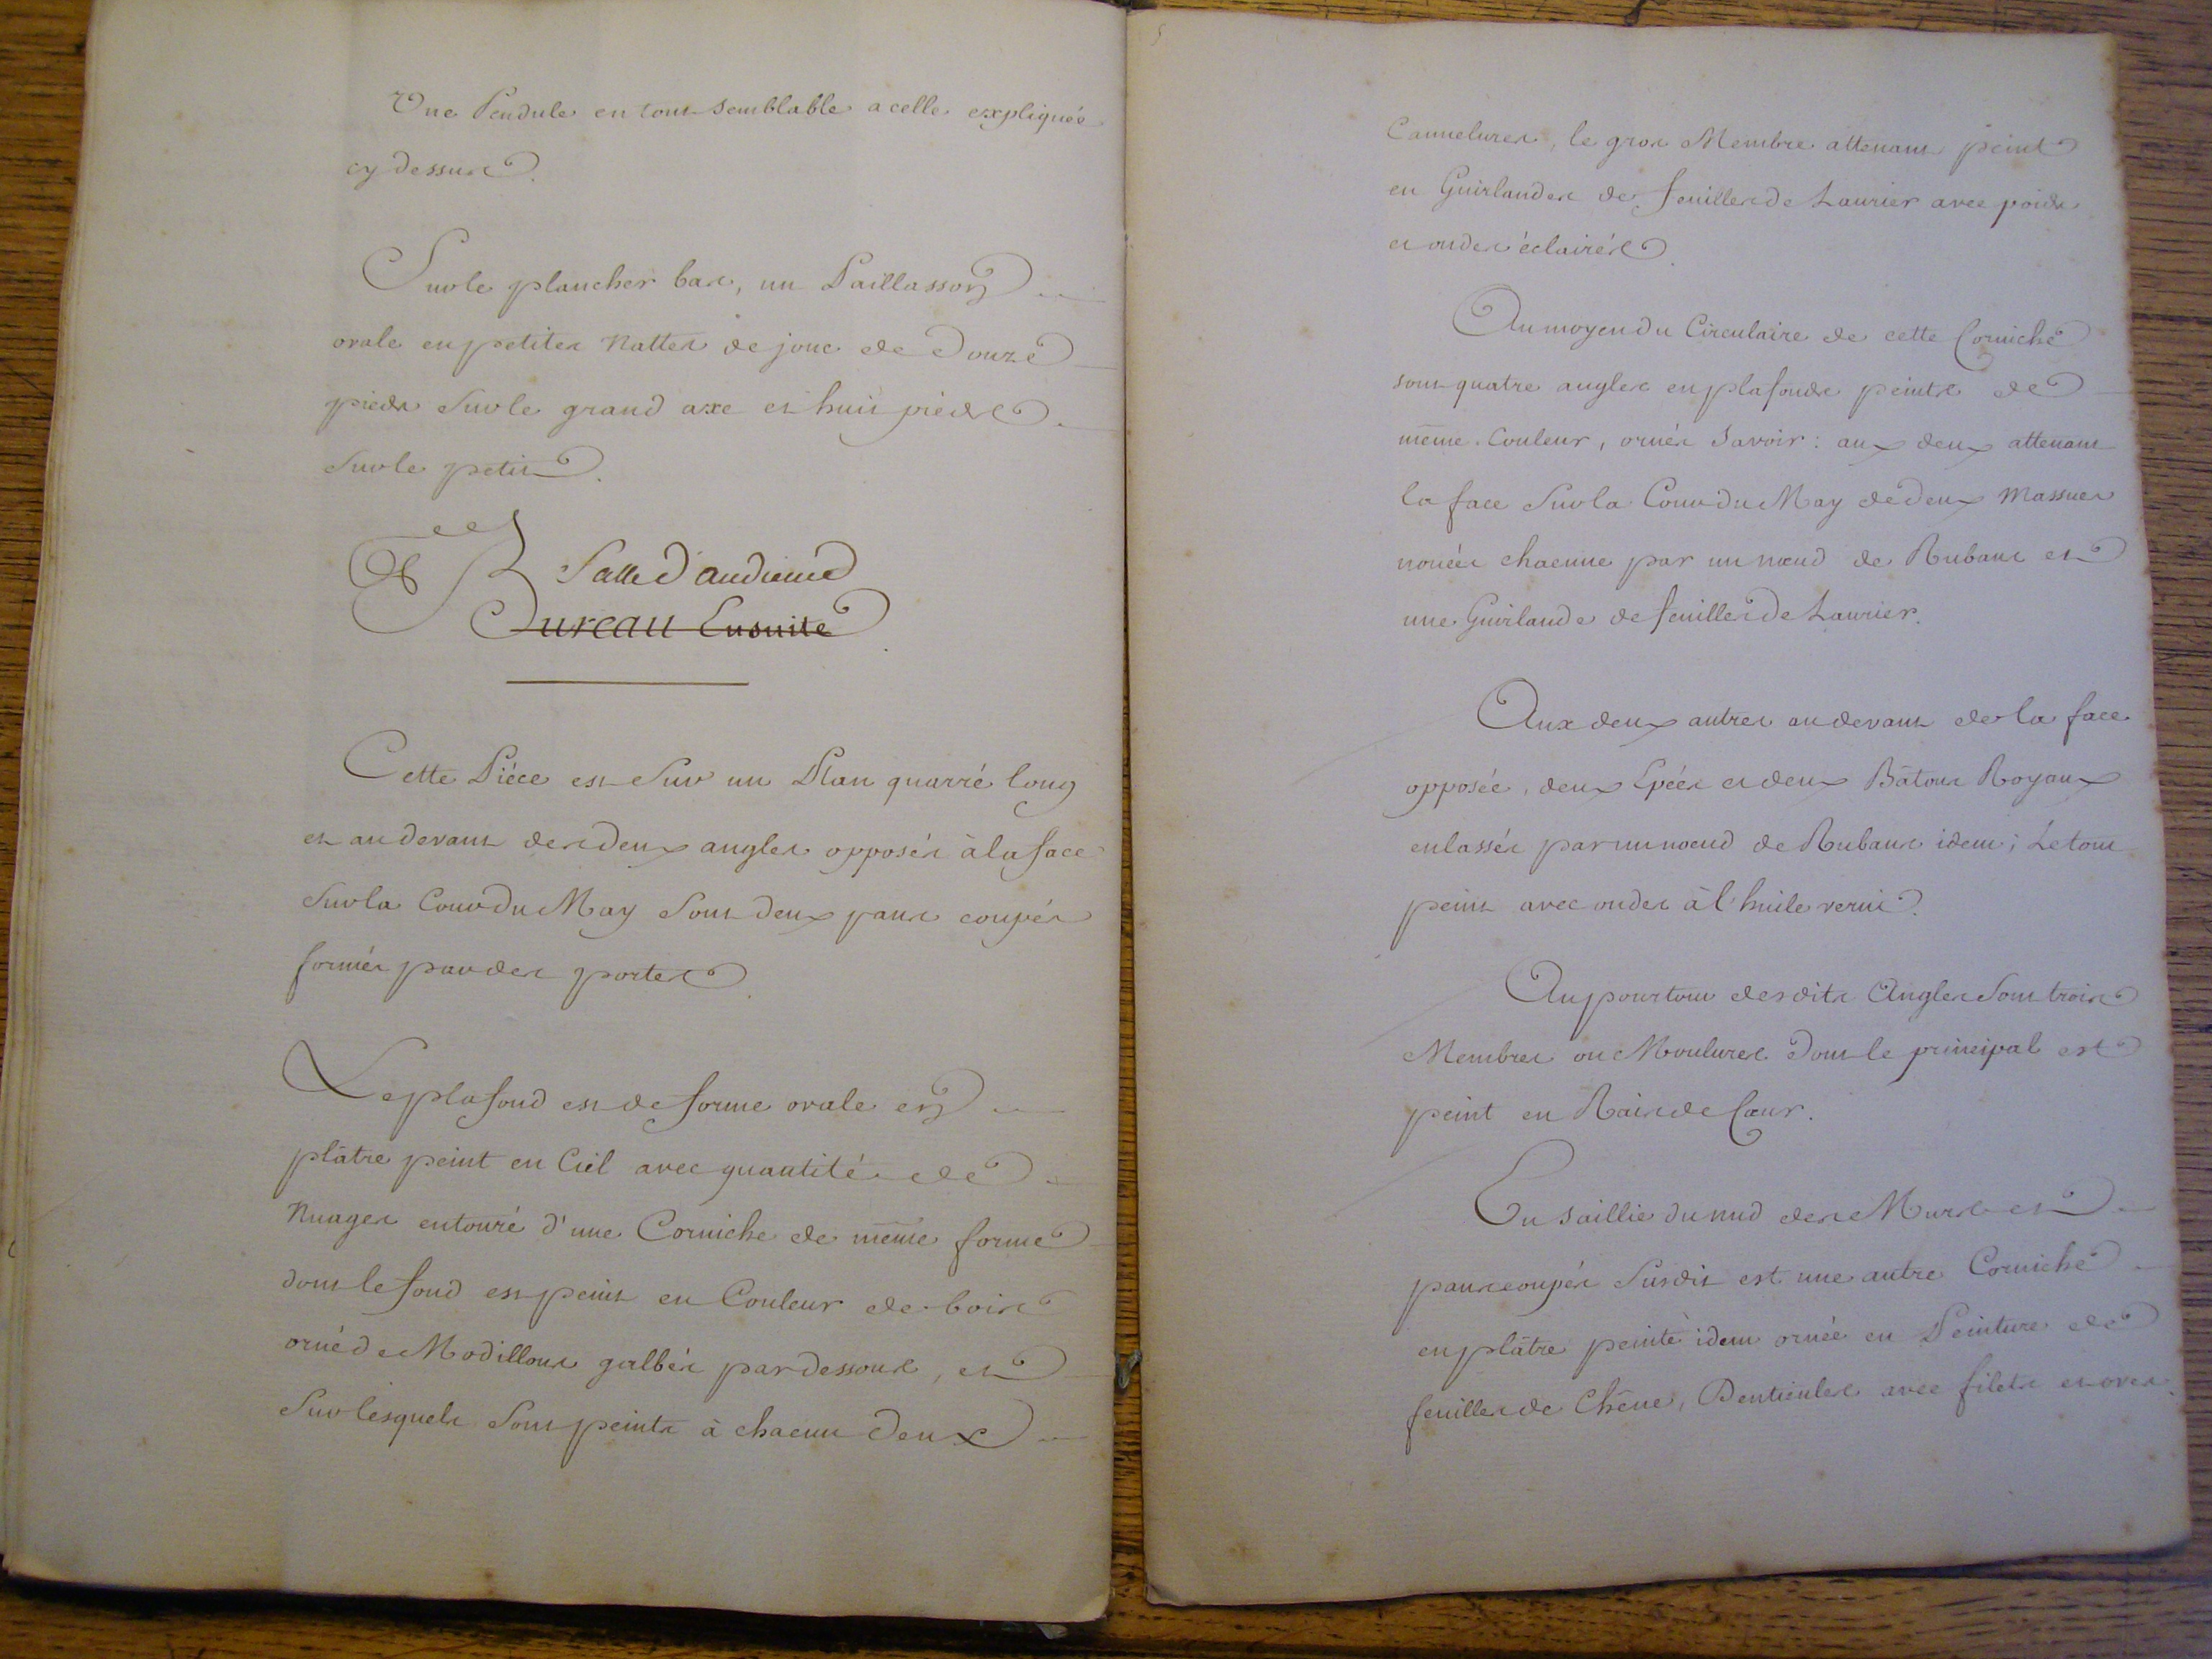 Une Pendule en tout semblable a celle expliquée
cy dessus.
Sur le plancher bas, un Paillasson
ovale en petites Nattes de jonc de Douze
pieds Sur le grand axe et huit pieds
Sur le petit.
Salle d'audience
Bureau Ensuite
Cette Piéce est Sur un Plan quarré long
et au devant des deux angles opposés à la face
Sur la Cour du May Sont deux pans coupés
formés par des portes.
Le plafond est de forme ovale en
plâtre peint en Ciel avec quantité de
Nuages entouré d'une Corniche de même forme
dont le fond est peint en Couleur de bois
orné de Modillons galbés par dessous, et
Sur lesquels Sont peints à chacun deux
5
Cannelures, le gros Membre attenant peint
en Guirlandes de feuilles de Laurier avec poids
et ondes éclairés.
Au moyen du Circulaire de cette Corniche
sont quatre angles en plafonds peints de
même Couleur, ornés Savoir : aux deux attenant
la face Sur la Cour du May de deux Massues
nouées chacune par un nœud de Rubans et
une Guirlande de feuilles de Laurier.
Aux deux autres au devant de la face
opposée, deux Epées et deux Bâtons Royaux
enlassés par un noeud de Rubans idem ; Le tout
peint avec ondes à l'huile verni.
Au pourtour des dits Angles Sont trois
Membres ou Moulures dont le principal est
peint en Rais de Cœur.
En saillie du nud des Murs et
pans coupés Susdit est une autre Corniche
en plâtre peinte idem ornée en Peinture de
feuilles de Chêne, Denticules avec filets et oves.